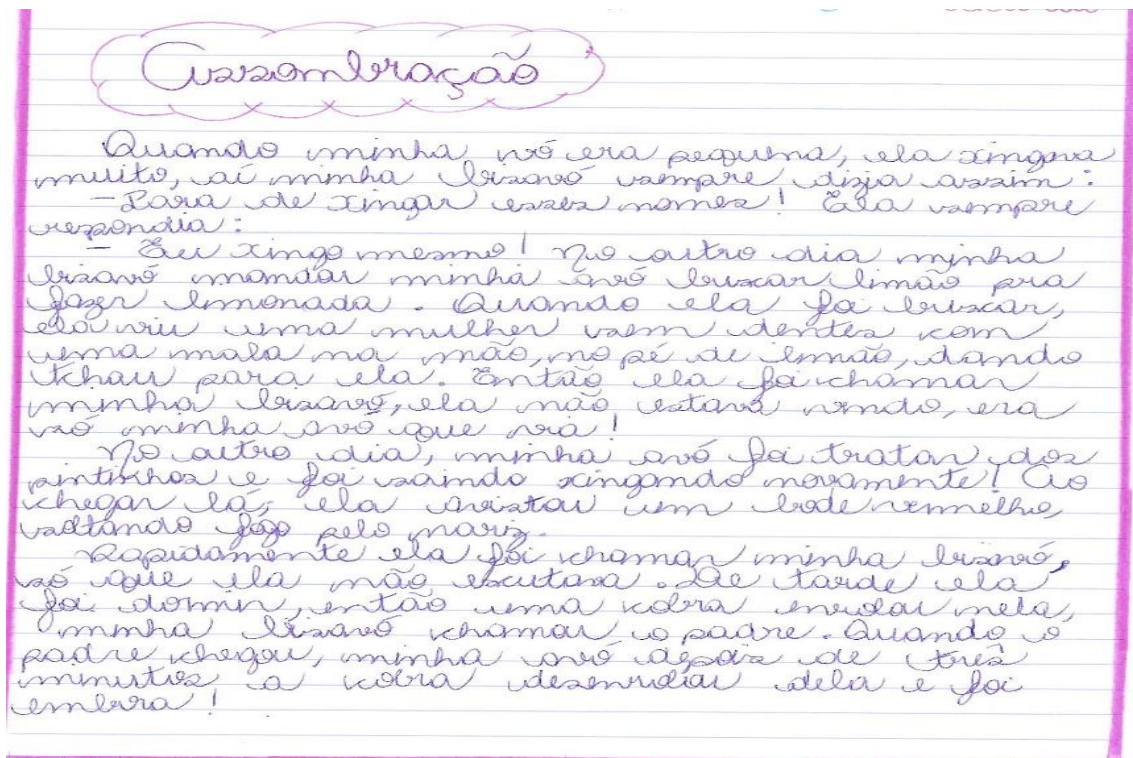 Assombração
Quando minha vó era pequena, ela xingava
muito, aí minha bisavó sempre dizia assim:
– Para de xingar esses nomes! Ela sempre
respondia:
– Eu xingo mesmo! No outro dia minha
bisavó mandou minha avó buscar limão pra
fazer limonada. Quando ela foi buscar,
ela viu uma mulher sem dentes com
uma mala na mão, no pé de limão, dando
tchau para ela. Então ela foi chamar
minha bisavó, ela não estava vendo, era
só minha avó que via!
No outro dia, minha avó foi tratar dos
pintinhos e foi saindo xingando novamente! Ao
chegar lá, ela avistou um bode vermelho,
soltando fogo pelo nariz.
Rapidamente ela foi chamar minha bisavó,
só que ela não escutava. De tarde ela
foi dormir, então uma cobra enrolou nela,
minha bisavó chamou o padre. Quando o
padre chegou, minha avó depois de três
minutos a cobra desenrolou dela e foi
embora!